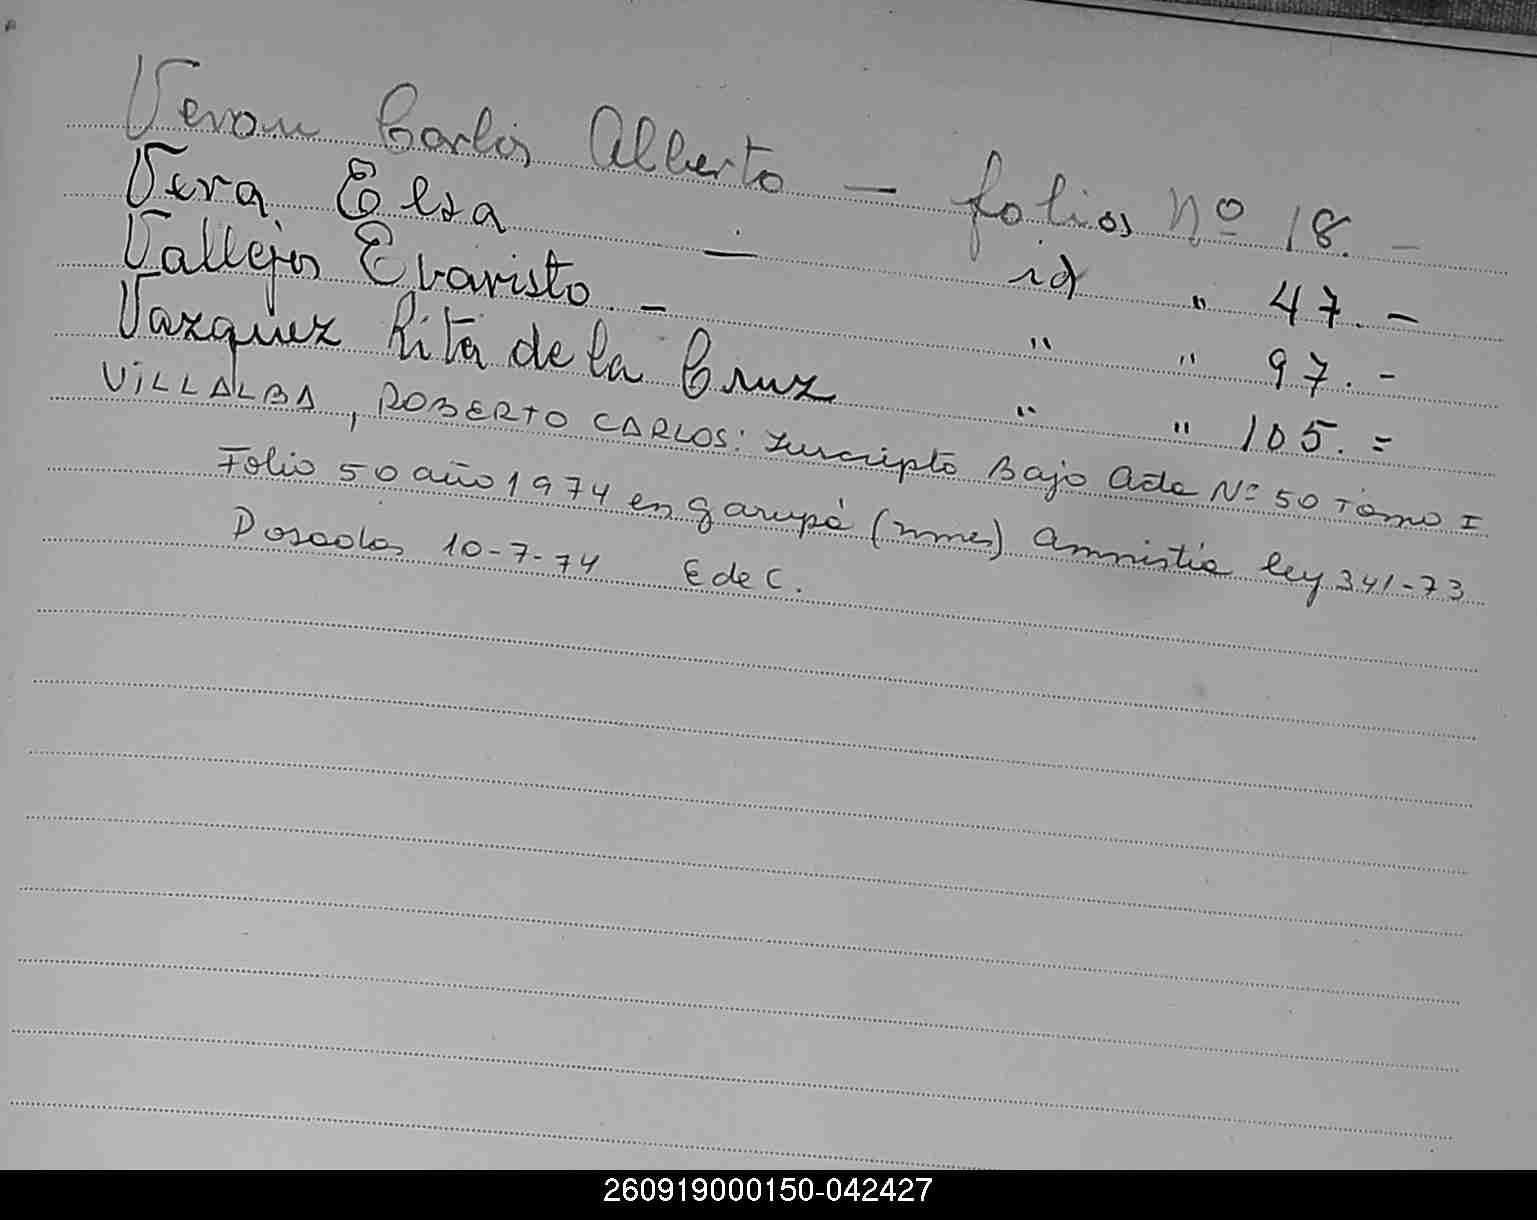 Veron Carlos Alberto — folios Nº 18. -
Vera Elsa — id " 47. -
Vallejos Evaristo - " " 97. -
Vazquez Rita de la Cruz " " 105. =
VILLALBA, ROBERTO CARLOS: Inscripto Bajo Acta Nº 50 Tomo I
Folio 50 año 1974 en garupá (mnes) Amnistia ley 341-73
Posadas 10-7-74 E de C.
260919000150-042427